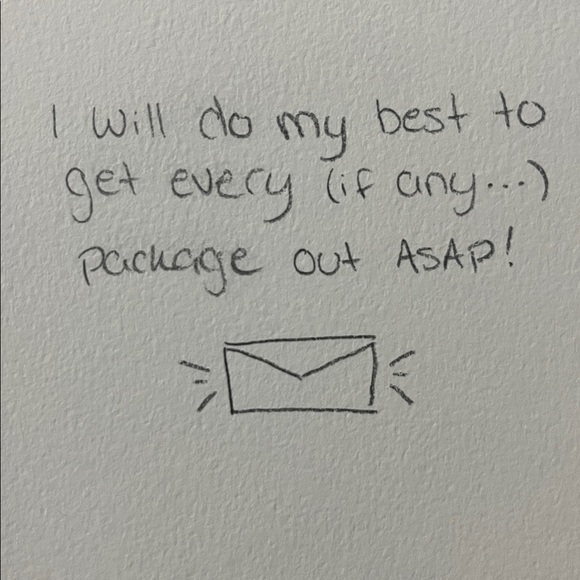 I will do my best to
get every (if any...)
package out ASAP!